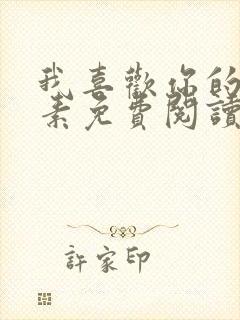 我喜歡你的
素免費閱讀
許家印